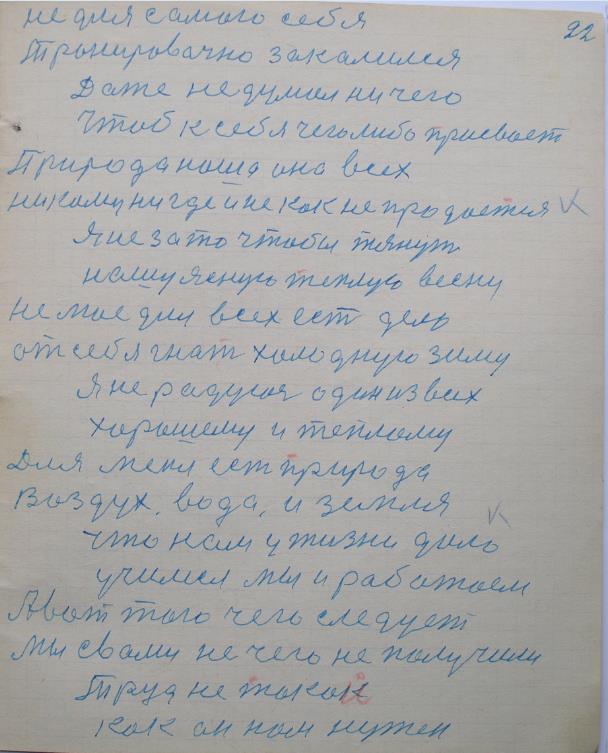 22
не для самого себя
Тронировачно закалился
Даже не думал ни чего
Чтоб к себя чего либо присвоет
Природа наша она всех
никому ни где и не как не продается
Я не за то чтобы тянут
нашу ясную теплую весну
не мое для всех ест дело
от себя гнат холодную зиму
Я не радуюс один из всех
хорошему и теплому
Для меня ест природа
Воздух, вода, и земля
что нам у жизни дало
учимся мы и работаем
А вот того чего следует
мы с вами не чего не получили
Труд не такой
как он нам нужен